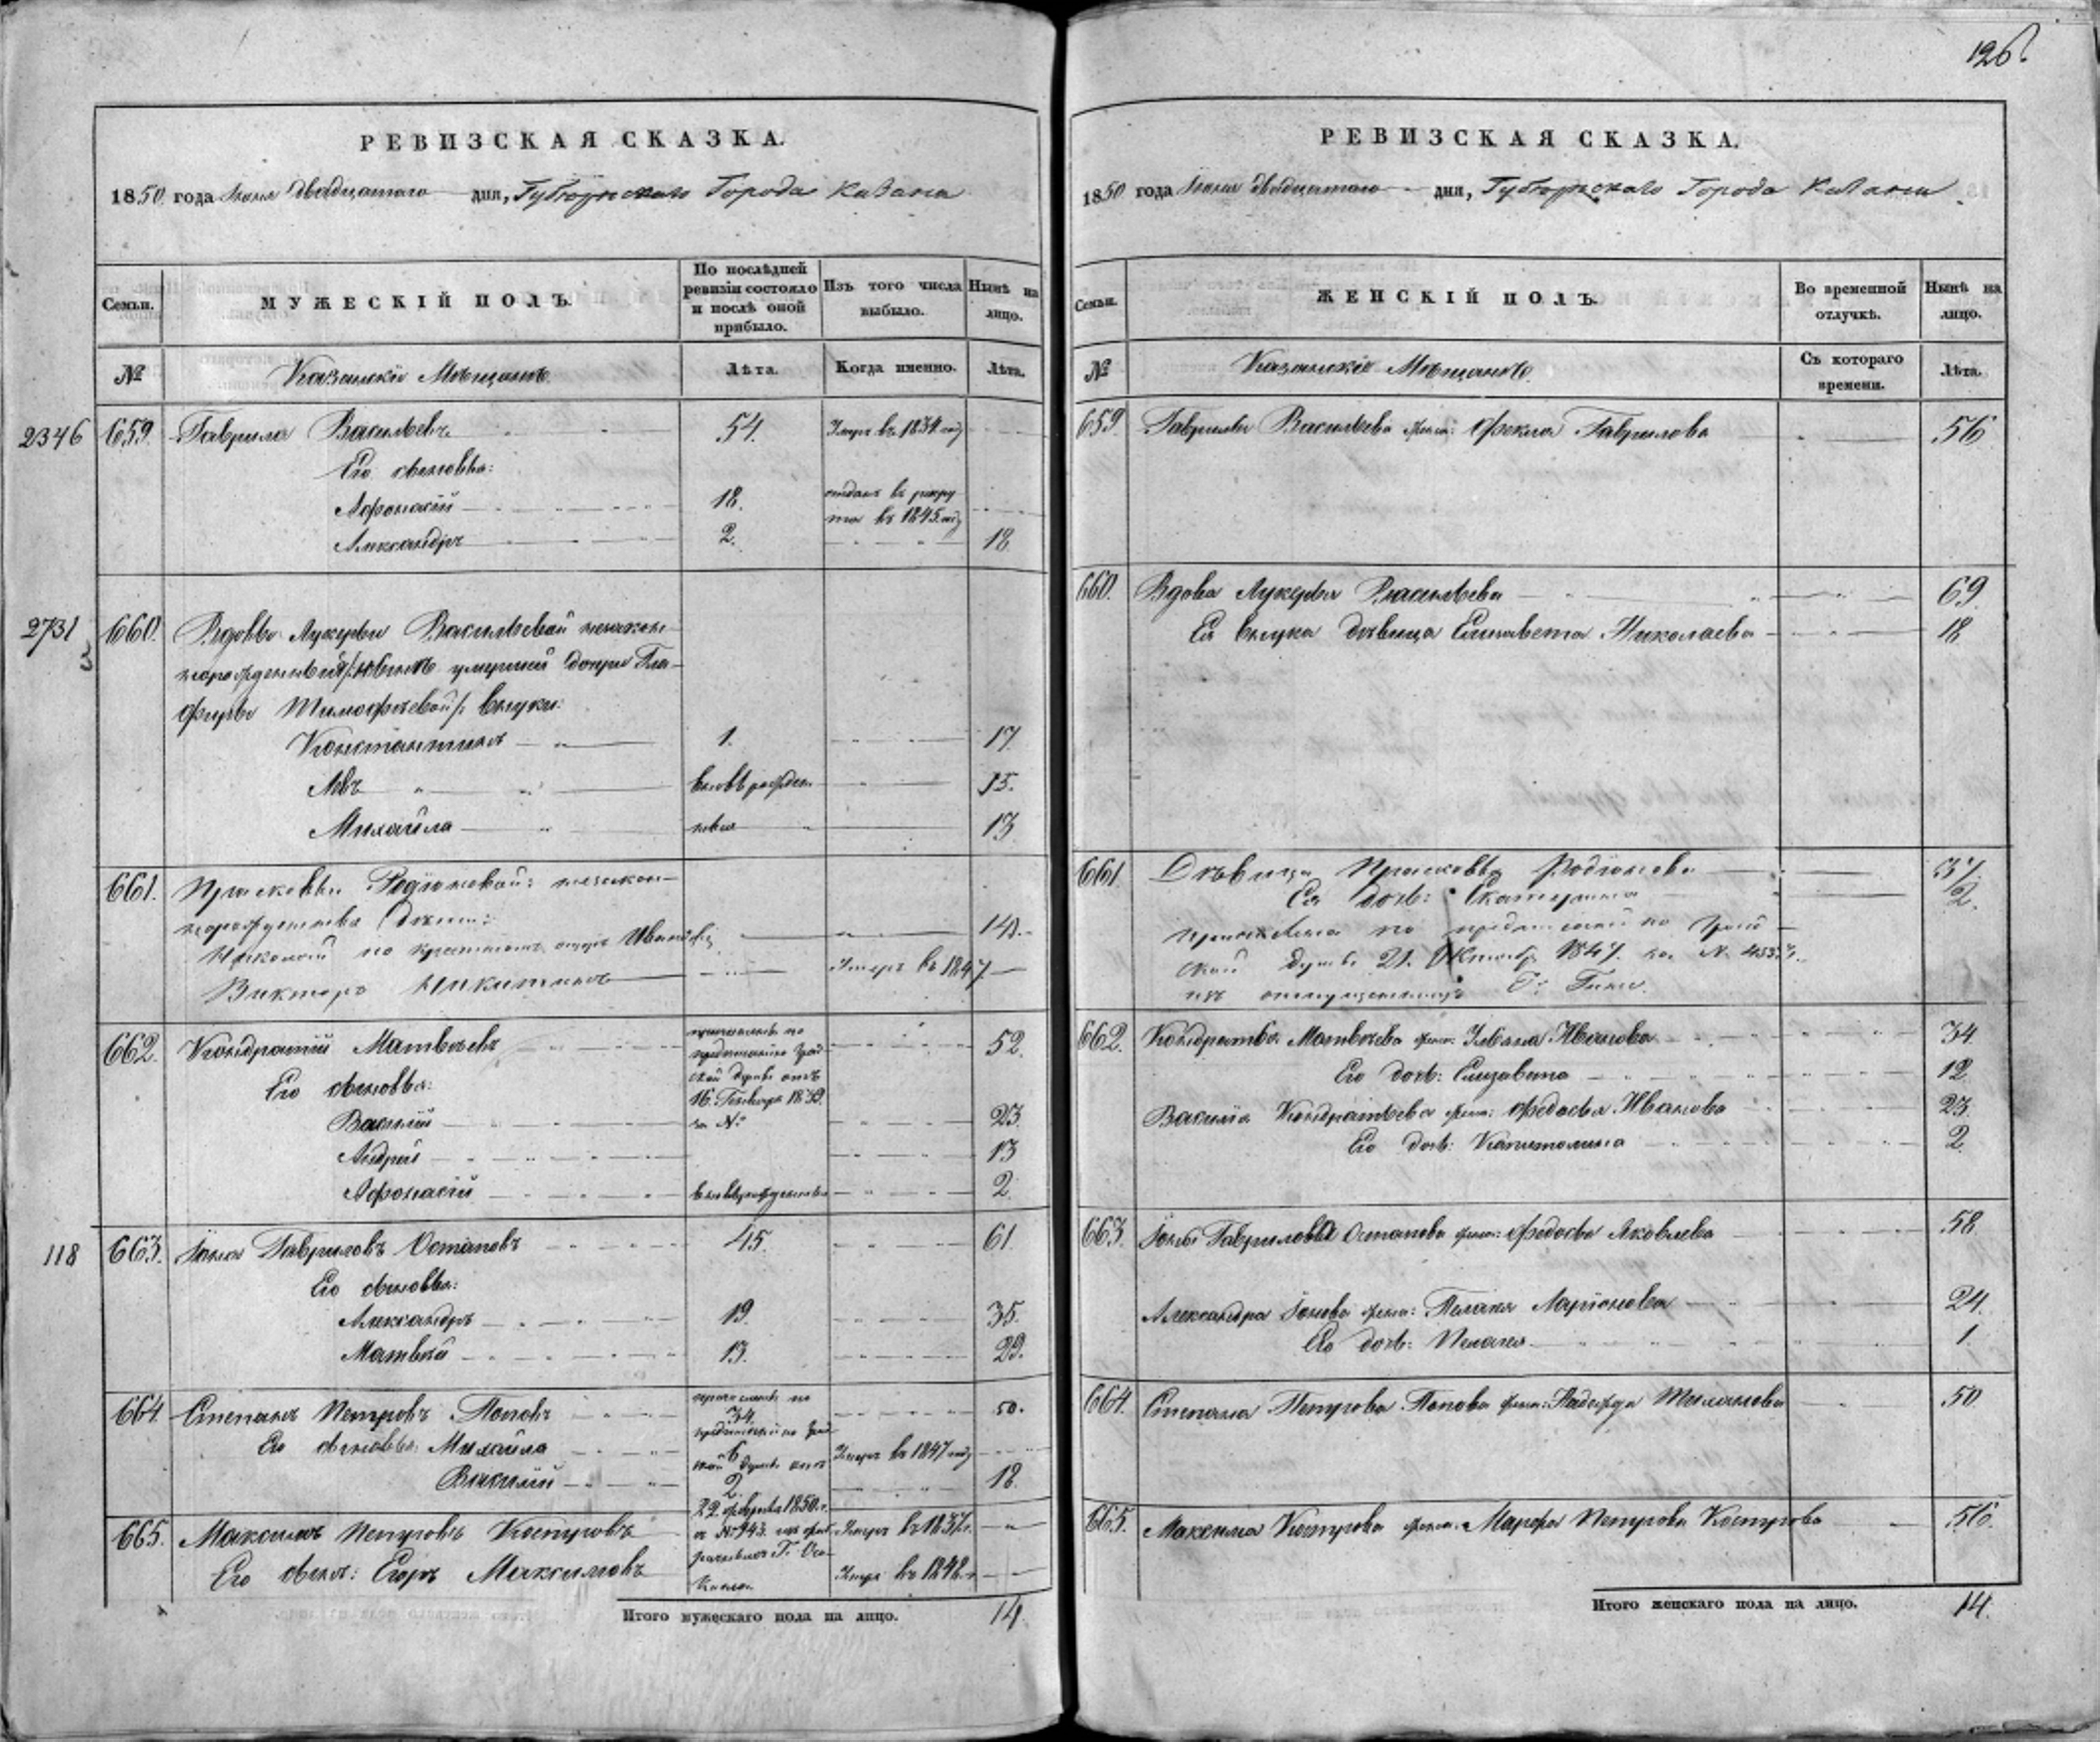 126.
РЕВИЗСКАЯ СКАЗКА.
1850 года Іюня двадцатаго дня, Губернскаго Города Казани
Семьи.
МУЖЕСКІЙ ПОЛЪ.
По послѣдней ревизіи состояло и послѣ оной прибыло.
Изъ того числа выбыло.
Нынѣ на лицо.
№
Казанскіе Мѣщане.
Лѣта.
Когда именно.
Лѣта.
2346 659. Гаврила Васильевъ 54. Умеръ въ 1834 году
Его сыновья:
Афонасій 18. отданъ въ рекруты въ 1845 году
Александръ 2. 18.
2731 660. Вдовы Лукерьи Васильевой незакон-
норожденныя умершей дочери Гла-
фиры Тимофѣевой внуки:
Константинъ 1. 17.
Левъ вновь рожден 15.
Михайла ные 13
661. Прасковьи Родіоновой: незакон-
норожденные дѣти:
Николай по крестномъ отцѣ Ивановъ 14.
Викторъ Никитинъ Умеръ въ 1847
662. Кондратій Матвѣевъ причисленъ по 52.
предписанію Град-
ской думы отъ
Его сыновья: 16. Генваря 18
Василій за № 23.
Андрей 13
Афонасій вновьрожденный 2.
118 663. Іона Гавриловъ Остаповъ 45. 61.
Его сыновья:
Александръ 19. 35.
Матвѣй 13. 29.
664. Степанъ Петровъ Поповъ причисленъ по 34. 50.
предписанію Град-
Его сыновья: Михайла 6 Умеръ въ 1847 году
ской думы отъ
Василій 2. 18.
22. февраля 1850. г.
665. Максимъ Петровъ Костровъ за № 943. Умеръ въ 1837 г.
Его сынъ: Егоръ Максимовъ Умеръ въ 1848 г.
Итого мужескаго пола на лицо. 14.
РЕВИЗСКАЯ СКАЗКА.
1850 года Іюня двадцатаго дня, Губернскаго Города Казани
Семьи.
ЖЕНСКІЙ ПОЛЪ.
Во временной отлучкѣ.
Нынѣ на лицо.
№
Казанскіе Мѣщане.
Съ котораго времени.
Лѣта.
659. Гаврилы Васильева жена: Фекла Гаврилова 56
660. Вдова Лукерья Васильева 69.
Ея внука дѣвица Елизавета Николаева 18
661. Дѣвица Прасковья Родіонова 37.
Ея дочь: Екатерина 2.
причислена по предписанію Град-
ской думы 21. Октября 1847. за №
изъ отпущенницъ
662. Кондратья Матвѣева жена: Ульяна Иванова 34.
Его дочь: Елизавета 12
Василія Кондратьева жена: Федосья Иванова 23.
Его дочь: Капитолина 2.
663. Іоны Гаврилова Остапова жена: Федосья Яковлева 58
Александра Іонова жена: Пелагея Ларіонова 24.
Его дочь: Пелагея 1.
664. Степана Петрова Попова жена: Надежда 50
665. Максима Кострова жена: Марфа Петрова Кострова 56.
Итого женскаго пола на лицо. 14.